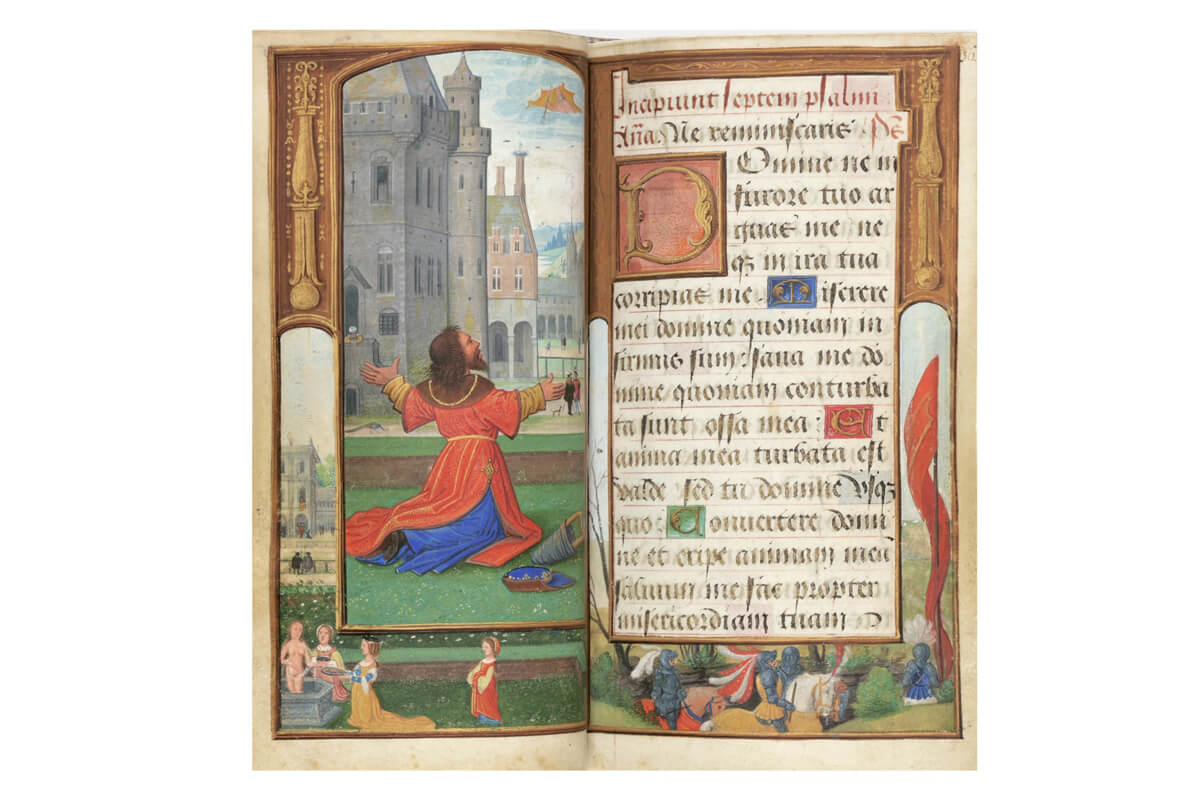 Incipiunt septem psalmi
Aña. Ne reminiscaris Ps̄
Domine ne in
furore tuo ar
guas me ne
qꝫ in ira tua
corripias me Miserere
mei domine quoniam in
firmus sum: sana me do
mine quoniam conturba
ta sunt ossa mea: Et
anima mea turbata est
valde sed tu domine vsqꝫ
quo: Conuertere domi
ne et eripe animam meā
saluum me fac propter
misericordiam tuam